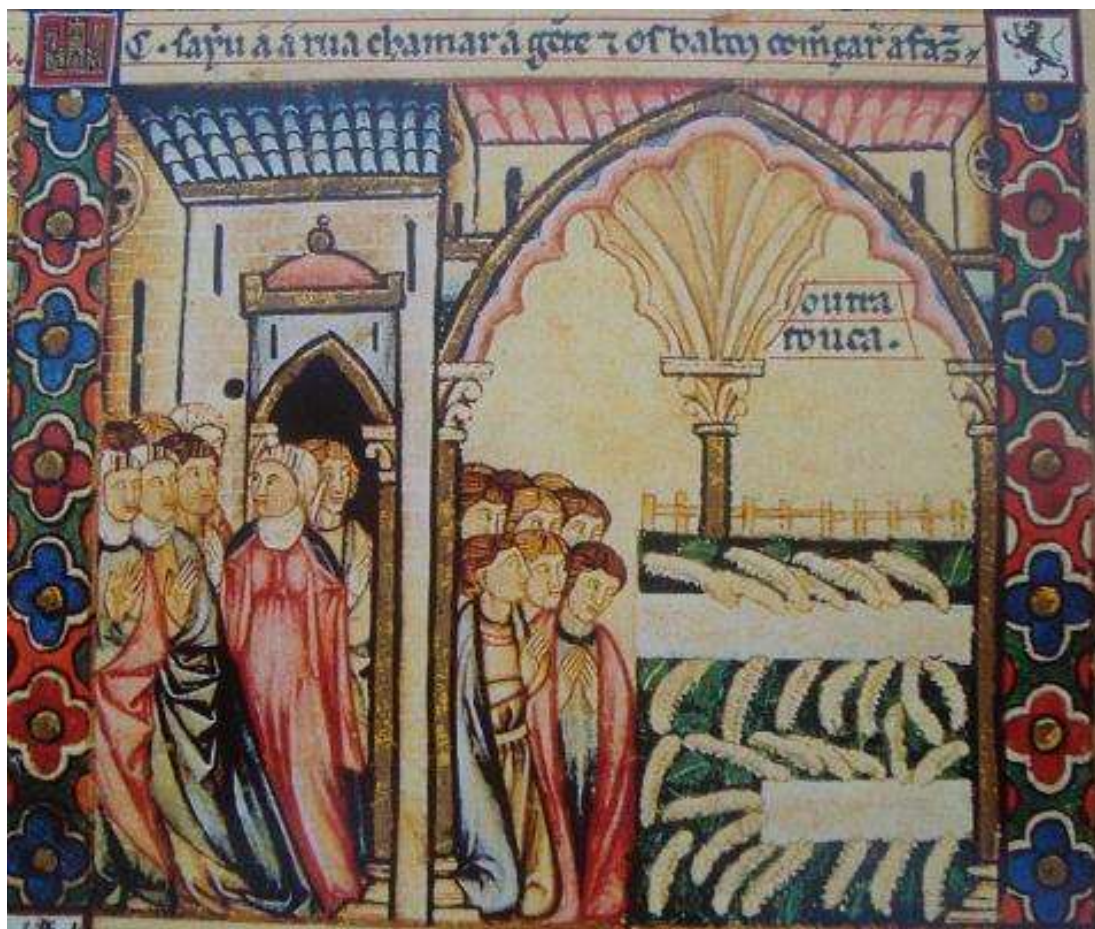 C · sayu á á rua chamar a gẽte ⁊ os com̃çar̃ a faz̃ ⁊
outra
touca.